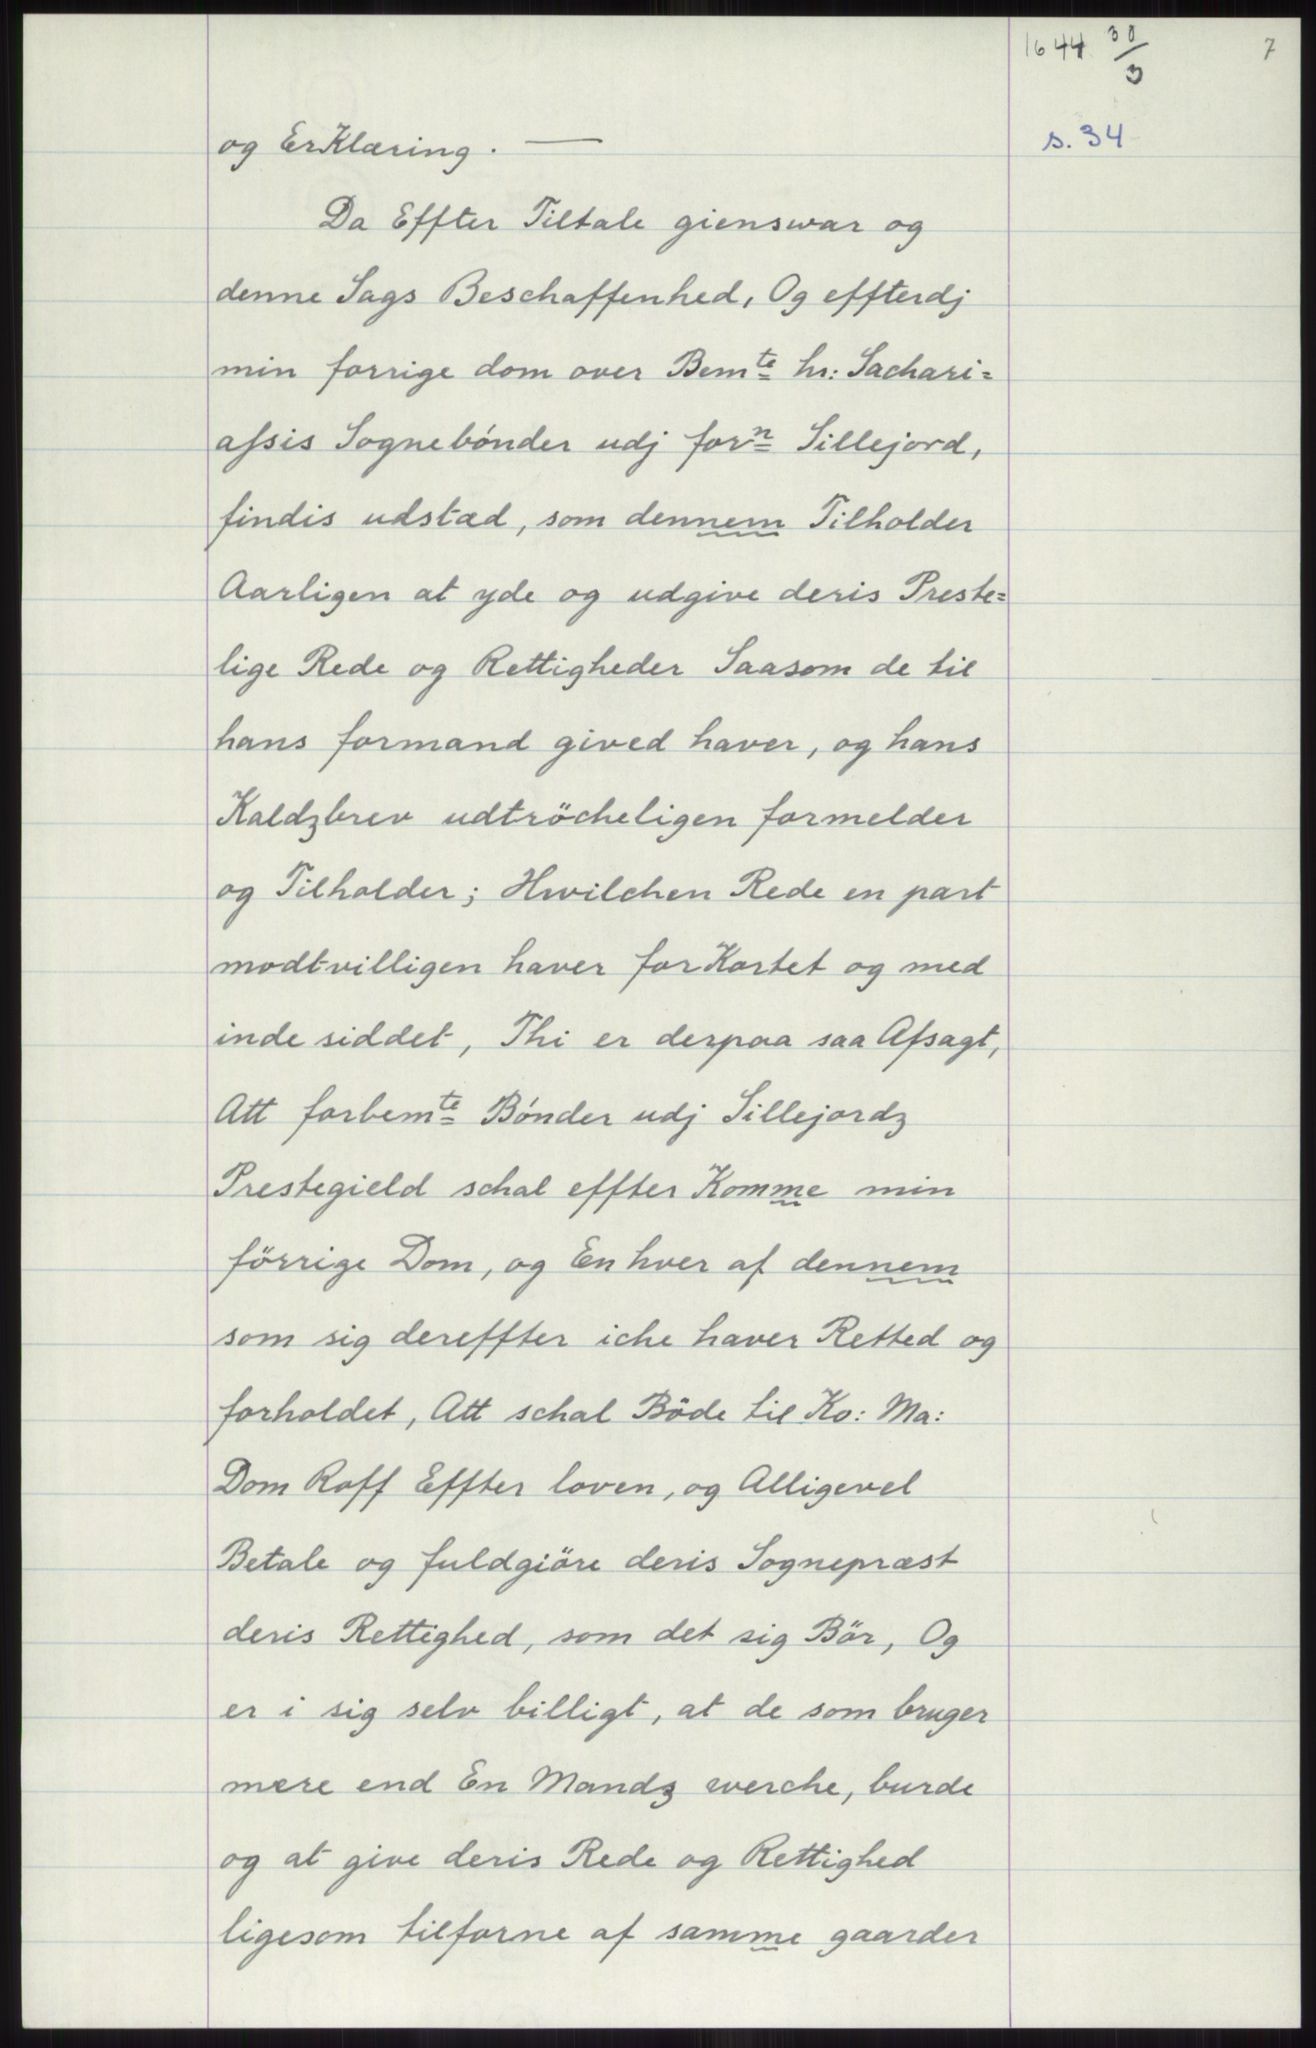 1644 30/3
7
s. 34
og ErKlæring. —
Da Effter Tiltale gienswar og
denne Sags Beschaffenhed, Og effterdj
min forrige dom over Bemte hr: Sachari=
assis Sognebónder udj forn Sillejord,
findis udstæd, som dennem Tilholder
Aarligen at yde og udgive deris Preste=
lige Rede og Rettigheder Saasom de til
hans formand gived haver, og hans
Kaldzbrev udtröcheligen formelder
og Tilholder; Hwilchen Rede en part
modtvilligen haver forKortet og med
inde siddet, Thi er derpaa saa Afsagt,
Att forbemte Bónder udj Sillejordz
Prestegield schal effter Komme min
förrige Dom, og En hver af dennem
som sig dereffter iche haver Retted og
forholdet, Att schal Böde til Ko: Ma:
Dom Roff Effter loven, og Alligevel
Betale og fuldgiöre deris Sognepræst
deris Rettighed, som det sig Bör, Og
er i sig selv billigt, at de som bruger
mere end En Mandz werche, burde
og at give deris Rede og Rettighed
ligesom tilforne af samme gaarder